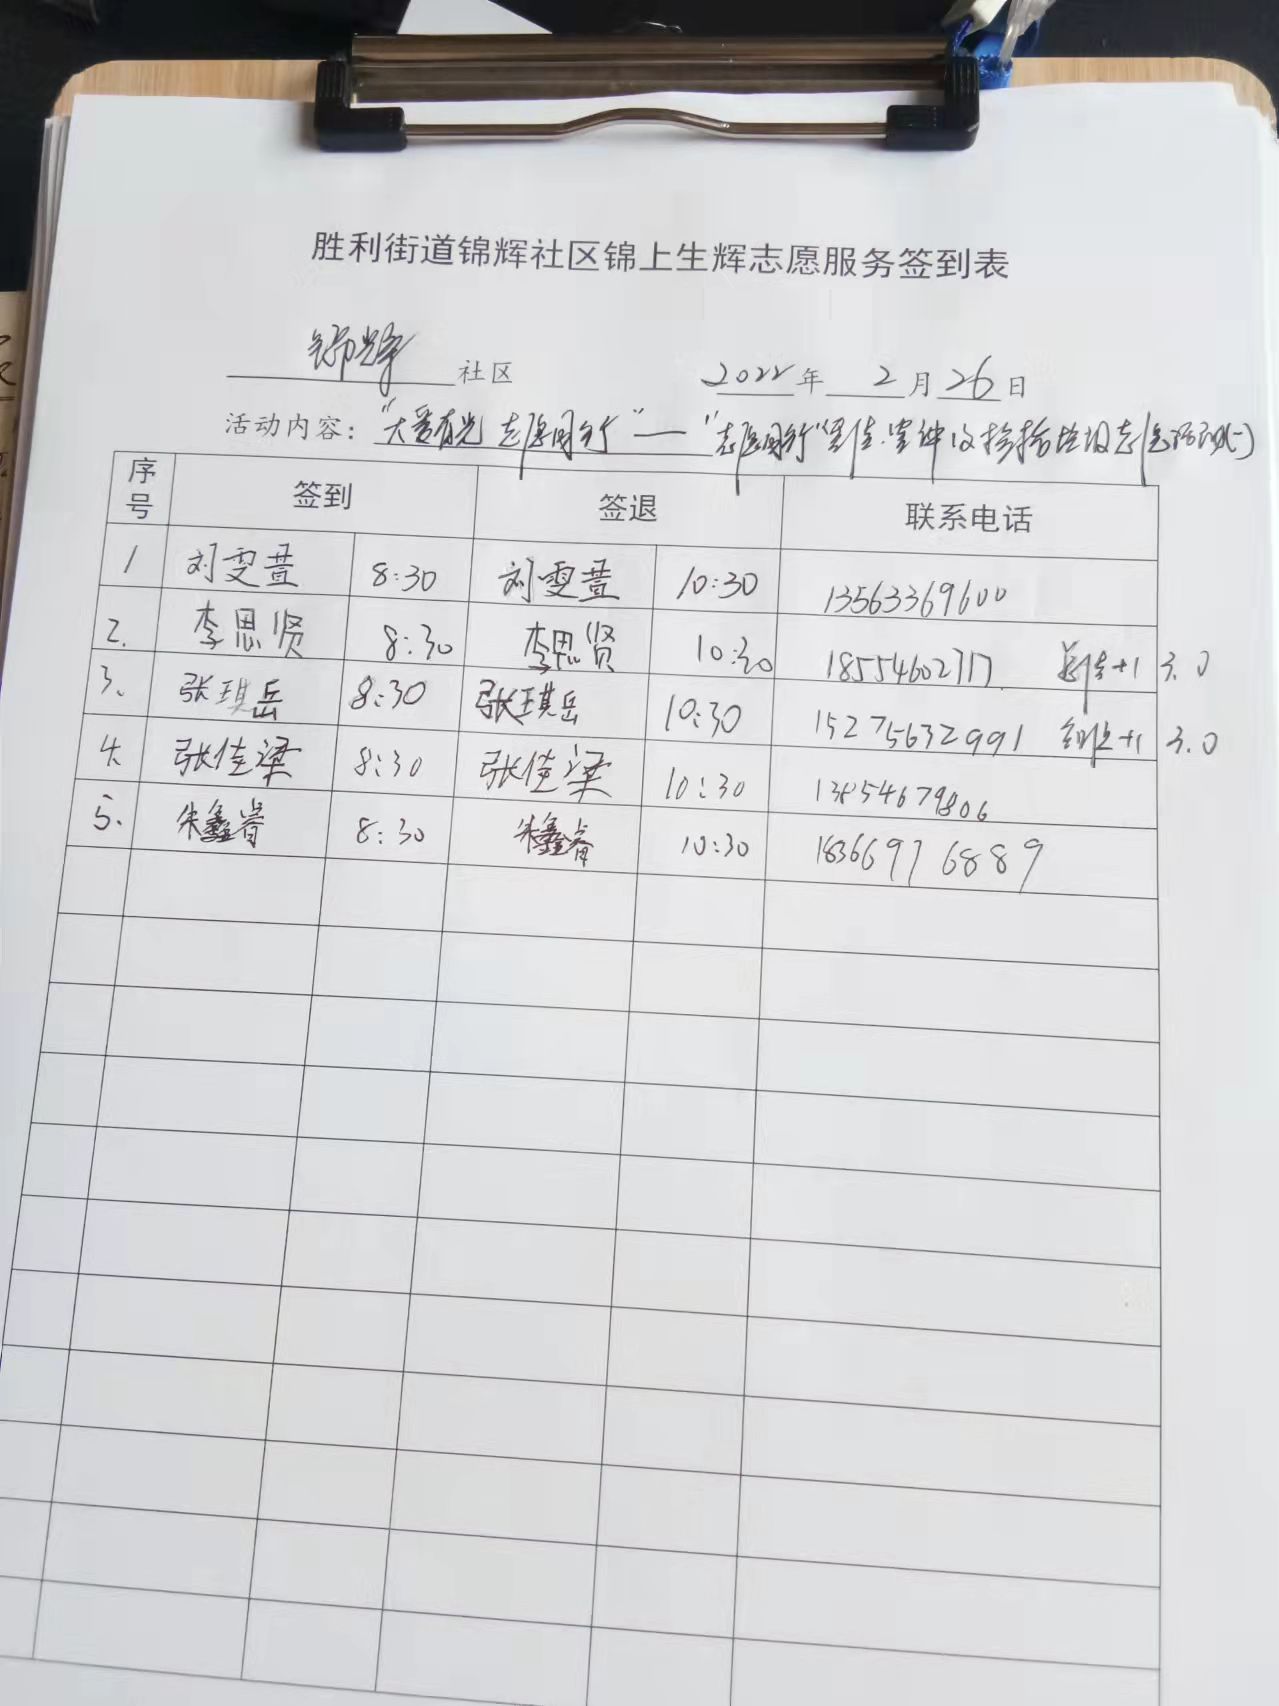 胜利街道锦辉社区锦上生辉志愿服务签到表
锦辉 社区 2022年 2月26日
活动内容: "大爱有光 志愿同行"——"志愿同行" 捡拾垃圾志愿活动(一)
序号 签到 签退 联系电话
1 刘雯萱 8:30 刘雯萱 10:30 13563369600
2. 李思贤 8:30 李思贤 10:30 18554602717 +1 3.0
3. 张琪岳 8:30 张琪岳 10:30 15275632991 +1 3.0
4. 张佳梁 8:30 张佳梁 10:30 13854679806
5. 朱鑫睿 8:30 朱鑫睿 10:30 18366976889